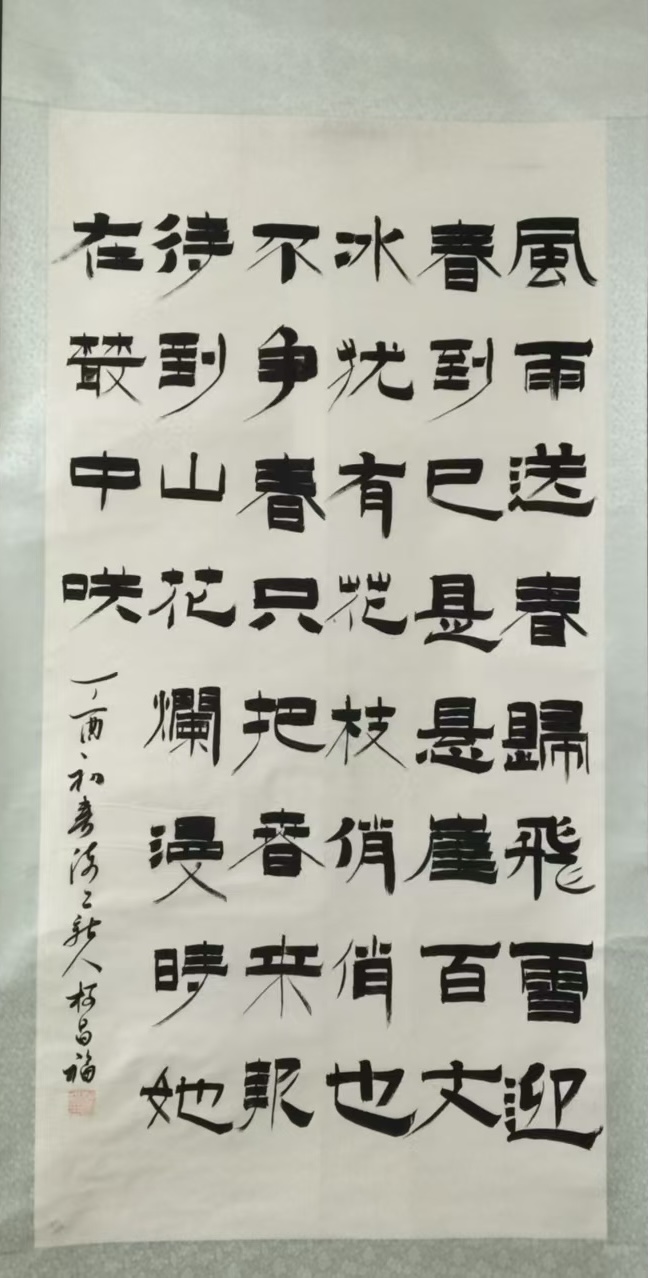 風雨送春歸飛雪迎
春到已是悬崖百丈
冰犹有花枝俏俏也
不争春只把春来報
待到山花爛漫時她
在叢中咲
丁酉初春人柯昌福